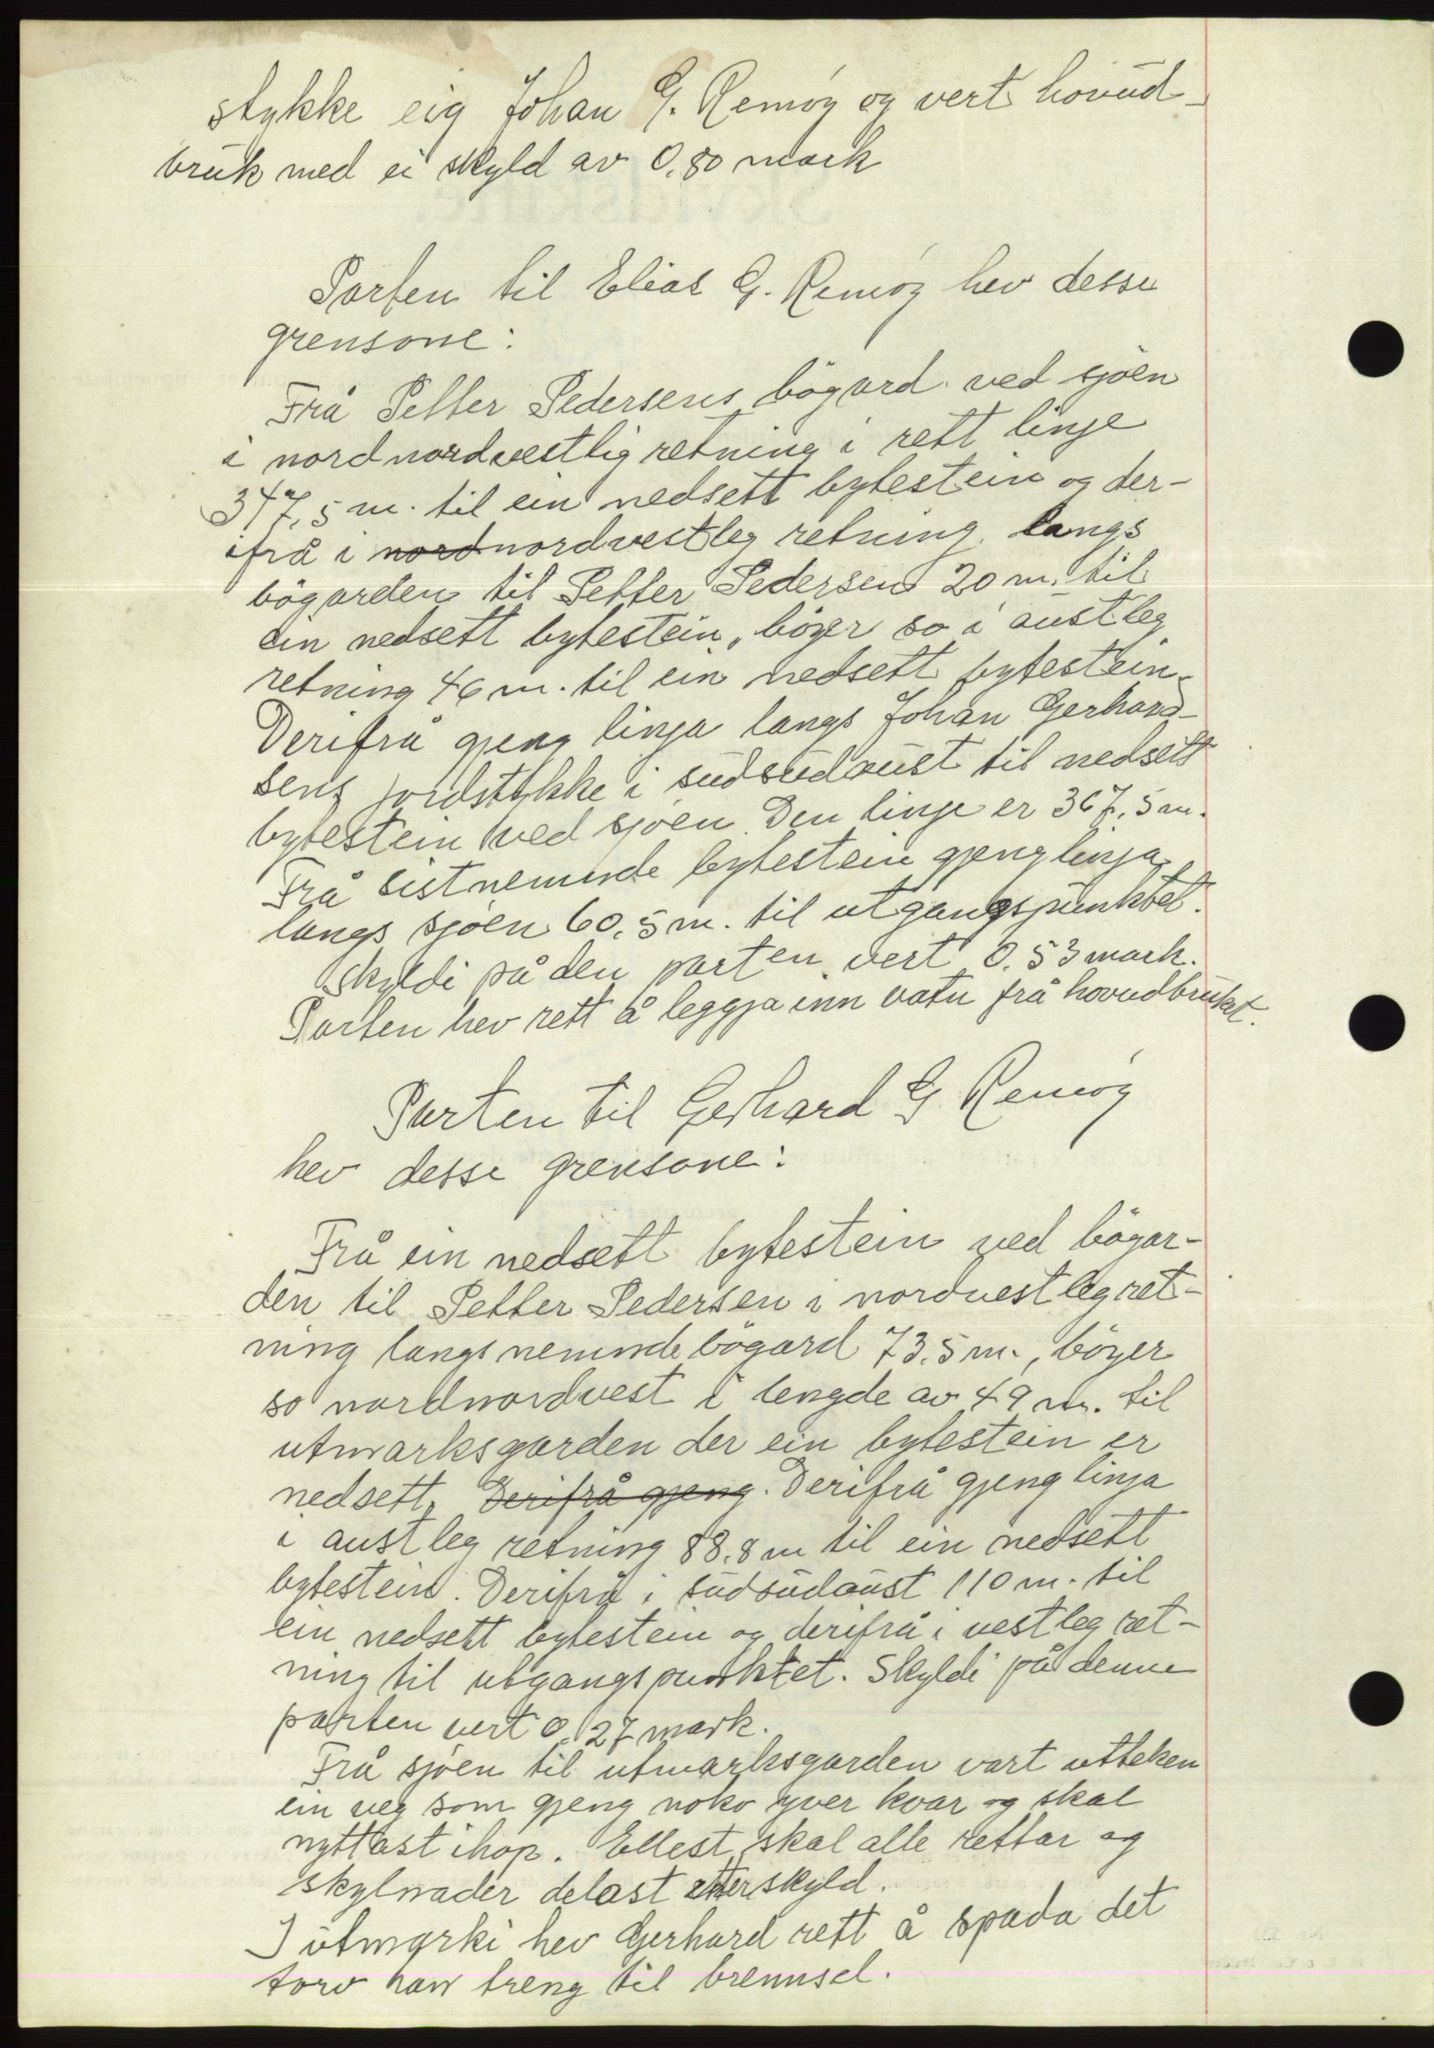 stykke eig Johan G. Remøy og vert hovud-
bruk med ei skyld av 0,80 mark
Parten til Elias G. Remøy hev desse
grensone:
Frå Petter Pedersens bøgard ved sjøen
i nordnordvestlig retning i rett linje
347,5 m. til ein nedsett bytestein og der-
ifrå i nordnordvestleg retning langs
bøgarden til Petter Pedersen 20 m. til
ein nedsett bytestein, bøyer so i austleg
retning 46 m. til ein nedsett bytestein.
Derifrå gjeng linja langs Johan Gerhard-
sens jordstykke i sudsudaust til nedsett
bytestein ved sjøen. Den linje er 367,5 m.
Frå sistnemnde bytestein gjeng linja
langs sjøen 60,5 m. til utgangspunktet.
Skyldi på den parten vert 0,53 mark.
Parten hev rett å leggja inn vatn frå hovudbruket.
Parten til Gerhard G. Remøy
hev desse grensone:
Frå ein nedsett bytestein ved bøgar-
den til Petter Pedersen i nordvestleg ret-
ning langs nemnde bøgard 73,5 m., bøyer
so nordnordvest i lengde av 49 m. til
utmarksgarden der ein bytestein er
nedsett. Derifrå gjeng. Derifrå gjeng linja
i austleg retning 88,8 m til ein nedsett
bytestein. Derifrå i sudsudaust 110 m. til
ein nedsett bytestein og derifrå i vestleg ret-
ning til utgangspunktet. Skyldi på denne
parten vert 0,27 mark.
Frå sjøen til utmarksgarden vart utteken
ein veg som gjeng noko yver kvar og skal
nyttast ihop. Ellest skal alle rettar og
skylnader delast etter skyld.
I utmarki hev Gerhard rett å spada det
torv han treng til brennsel.